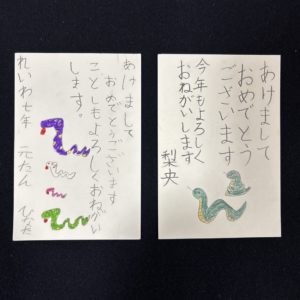 あけまして
おめでとうございます
ことしもよろしくおねがい
します。
れいわ七年 元たん ひなた
あけまして
おめでとう
ございます
今年もよろしく
おねがいします
梨央